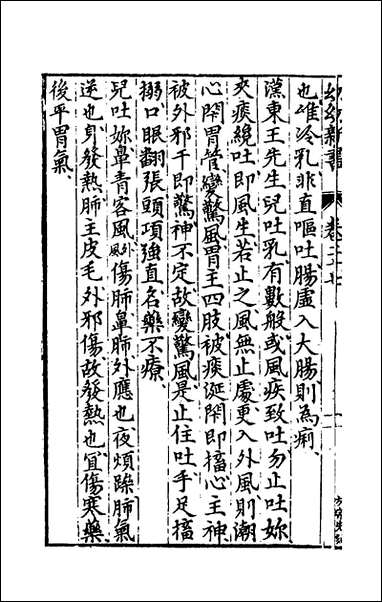 幼幼新書 卷二十七
也雖冷乳非直嘔吐腸虛入大腸則為痢
漢東王先生兒吐乳有數般或風疾致吐勿止吐妳
夾痰纔吐即風生若止之風無止處更入外風則潮
心閉胃管變驚風胃主四肢被痰涎閉即搐心主神
被外邪干即驚神不定故變驚風是止住吐手足搐
搦口眼翻張頭項強直名藥不療
兒吐妳鼻青客風風外傷肺鼻肺外應也夜煩躁肺氣
逆也身發熱肺主皮毛外邪傷故發熱也宜傷寒藥
後平胃氣